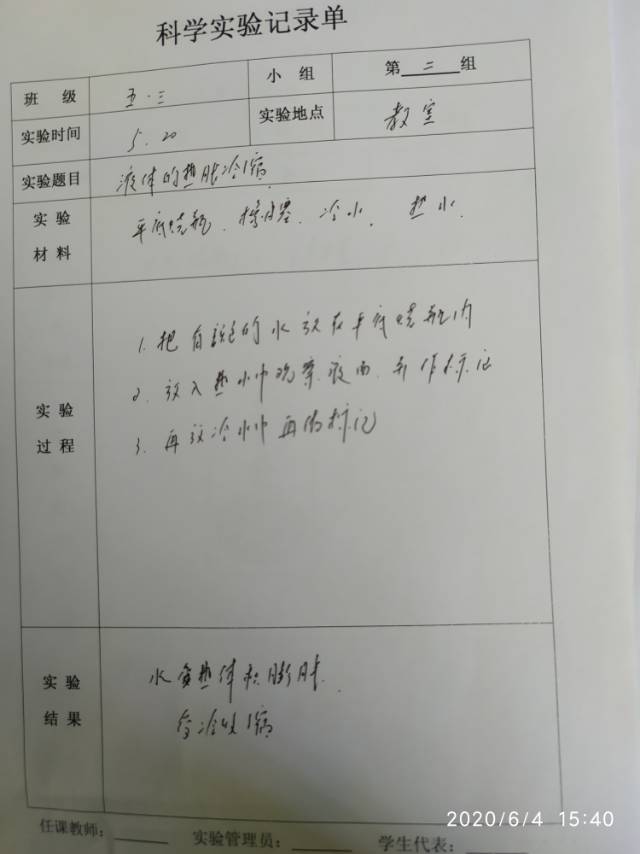 科学实验记录单
班 级 五.三 小 组 第二组
实验时间 5.20 实验地点 教室
实验题目 液体的热胀冷缩
实验材料 平底烧瓶、橡皮塞、冷水、热水.
实验过程
1. 把有颜色的水放在平底烧瓶内
2. 放入热水中观察液面,并作标记
3. 再放冷水中再做标记
实验结果
水受热体积膨胀.
受冷收缩
2020/6/4 15:40
任课教师: 实验管理员: 学生代表: